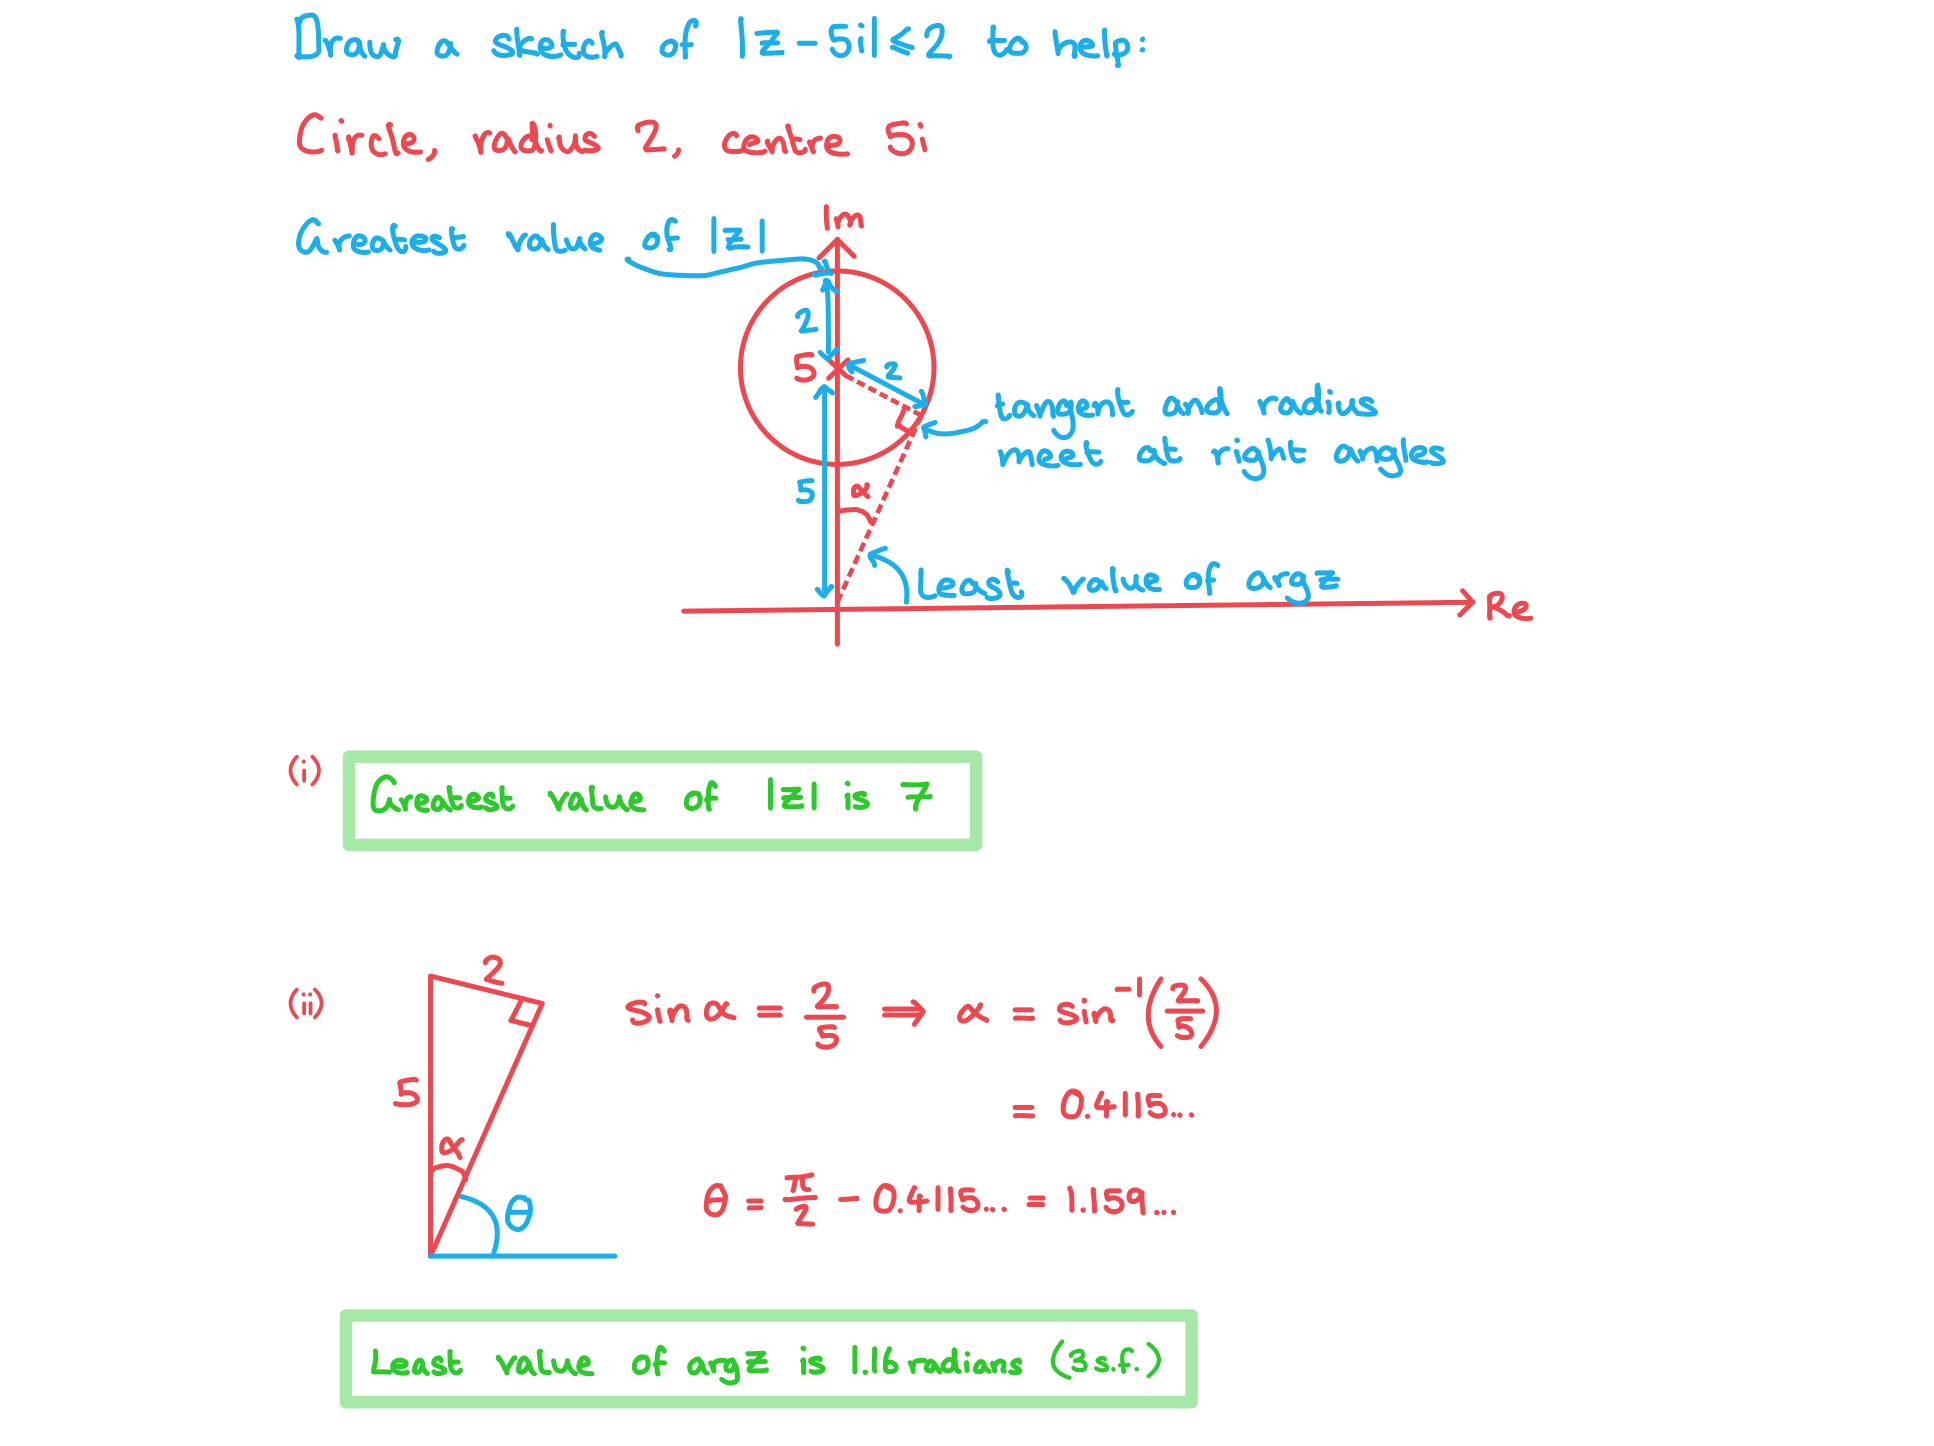 Draw a sketch of |z - 5i| ⩽ 2 to help:
Circle, radius 2, centre 5i
Greatest value of |z|
Im
2
5
2
tangent and radius
meet at right angles
5
α
Least value of arg z
Re
(i)
Greatest value of |z| is 7
(ii)
2
5
α
θ
sin α = 2/5 ⇒ α = sin⁻¹(2/5)
= 0.4115...
θ = π/2 - 0.4115... = 1.159...
Least value of arg z is 1.16 radians (3 s.f.)